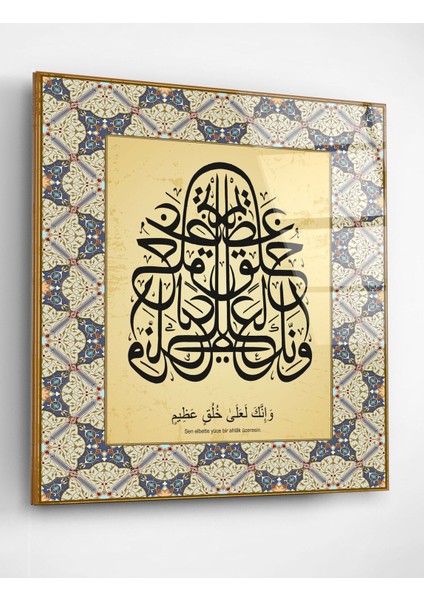 وإنك لعلى خلق عظيم
وَاِنَّكَ لَعَلٰى خُلُقٍ عَظٖيمٍ
Sen elbette yüce bir ahlâk üzeresin.